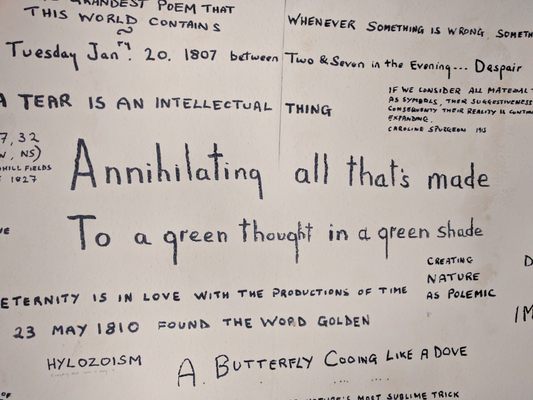 GRANDEST POEM THAT
THIS WORLD CONTAINS
WHENEVER SOMETHING IS WRONG, SOMETH
Tuesday Janry. 20. 1807 between Two & Seven in the Evening... Despair
A TEAR IS AN INTELLECTUAL THING
IF WE CONSIDER ALL MATERIAL T
AS SYMBOLS, THEIR SUGGESTIVENESS
CONSEQUENTLY THEIR REALITY IS CONTIN
EXPANDING.
CAROLINE SPURGEON 1913
7, 32
, NS)
NHILL FIELDS
1827
Annihilating all that's made
To a green thought in a green shade
CREATING
NATURE
AS POLEMIC
ETERNITY IS IN LOVE WITH THE PRODUCTIONS OF TIME
23 MAY 1810 FOUND THE WORD GOLDEN
IM
HYLOZOISM
A BUTTERFLY COOING LIKE A DOVE
OF
NATURE'S MOST SUBLIME TRICK